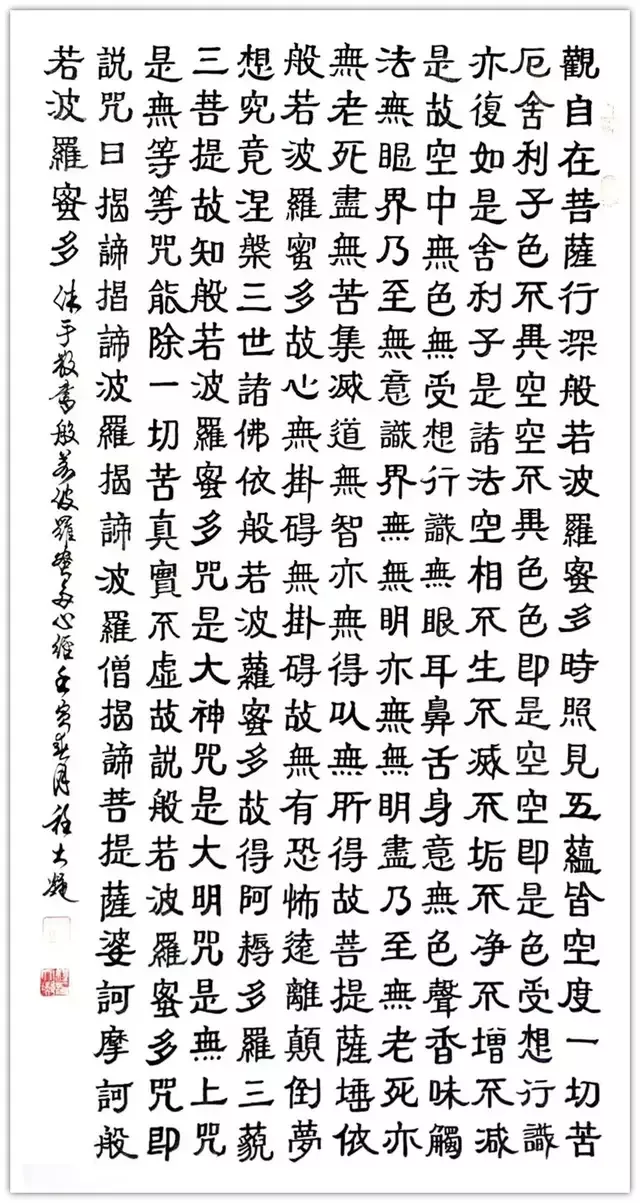 觀自在菩薩行深般若波羅蜜多時照見五蘊皆空度一切苦
厄舍利子色不異空空不異色色即是空空即是色受想行識
亦復如是舍利子是諸法空相不生不滅不垢不净不增不减
是故空中無色無受想行識無眼耳鼻舌身意無色聲香味觸
法無眼界乃至無意識界無無明亦無無明盡乃至無老死亦
無老死盡無苦集滅道無智亦無得以無所得故菩提薩埵依
般若波羅蜜多故心無掛碍無掛碍故無有恐怖遠離顛倒夢
想究竟涅槃三世諸佛依般若波蘿蜜多故得阿耨多羅三藐
三菩提故知般若波羅蜜多咒是大神咒是大明咒是無上咒
是無等等咒能除一切苦真實不虛故説般若波羅蜜多咒即
説咒曰揭諦揭諦波羅揭諦波羅僧揭諦菩提薩婆訶摩訶般
若波羅蜜多
手敬書般若波羅蜜多心經壬寅春月程大